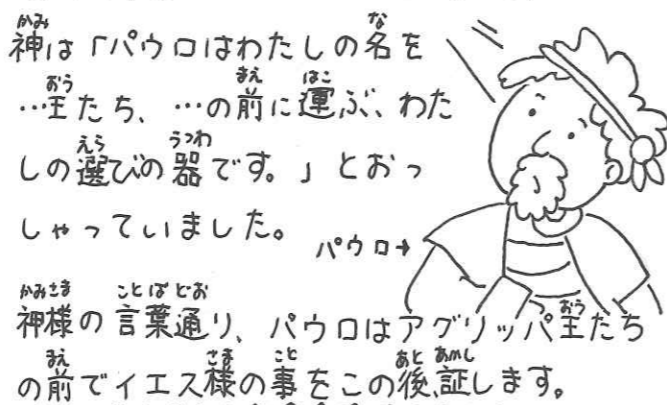 神は「パウロはわたしの名を
…王たち、…の前に運ぶ、わた
しの選びの器です。」とおっ
しゃっていました。
パウロ→
神様の言葉通り、パウロはアグリッパ王たち
の前でイエス様の事をこの後、証します。